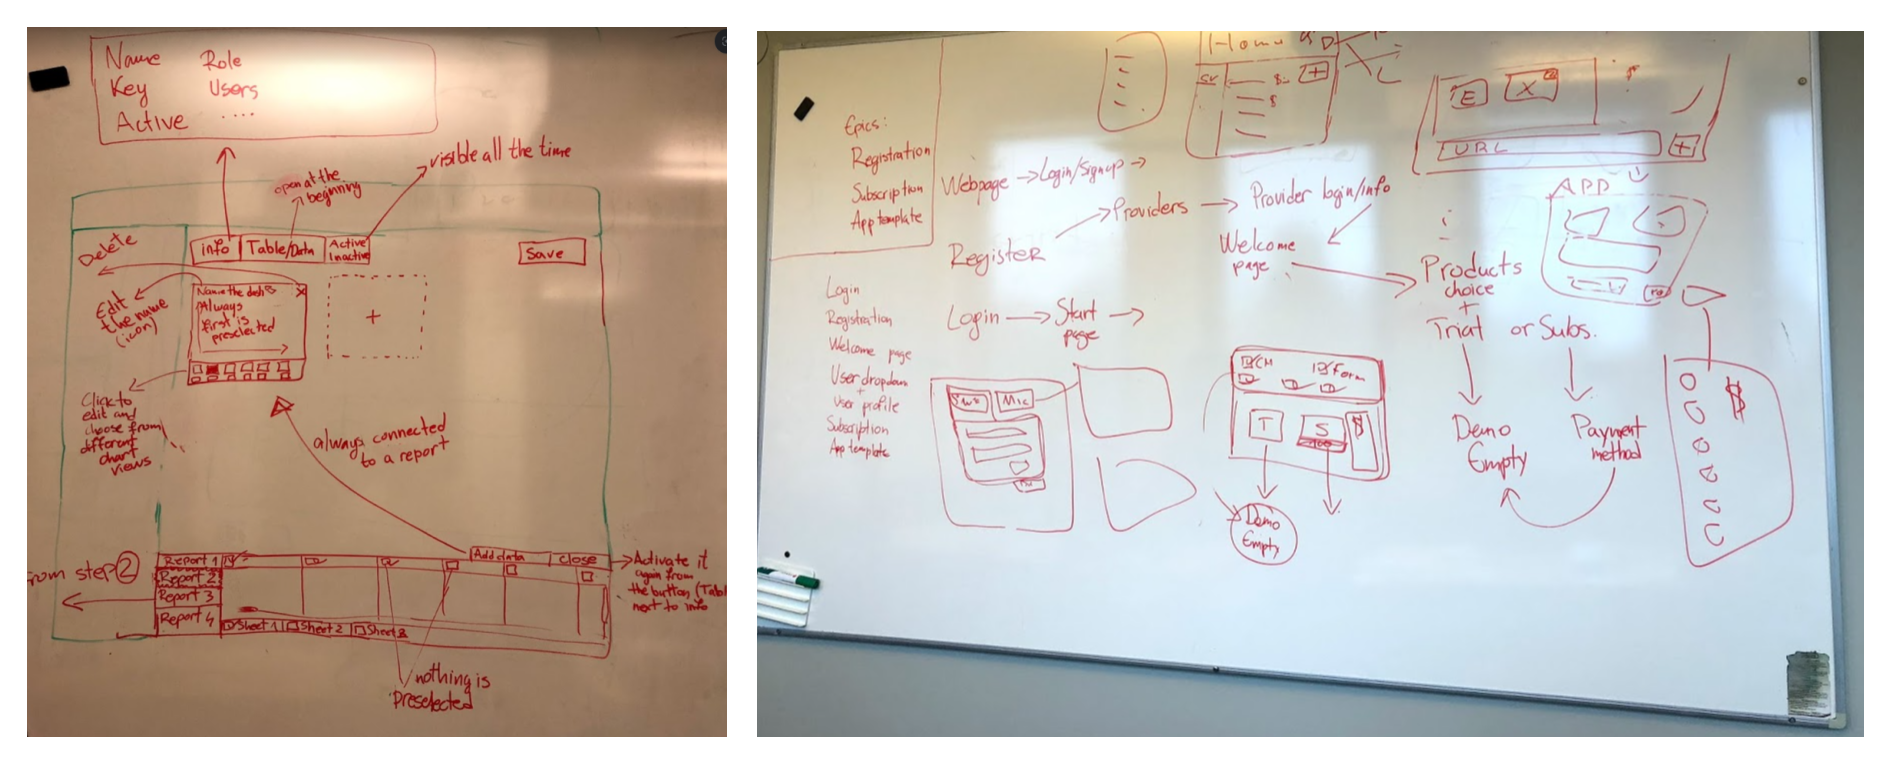 Name Role
Key Users
Active ....
visible all the time
open at the
beginning
Delete
info
Table/Data
Active
Inactive
Save
Edit
the name
(icon)
Name the dash
X
Always
first is
preselected
+
Click to
edit and
choose from
different
chart
views
always connected
to a report
from step 2
Report 1
Report 2
Report 3
Report 4
Add data
close
Activate it
again from
the button (Tabl
next to info
Sheet 1
Sheet 2
Sheet 3
nothing is
preselected
Epics:
Registration
Subscription
App template
Webpage → Login/Signup →
Register
Providers → Provider login/info
Welcome
page
Products
choice
+
Trial or Subs.
Demo
Empty
Payment
method
Login → Start
page →
Login
Registration
Welcome page
User dropdown
+
User profile
Subscription
App template
Mic
T
S
$
Demo
Empty
E
X
URL
+
APP
$